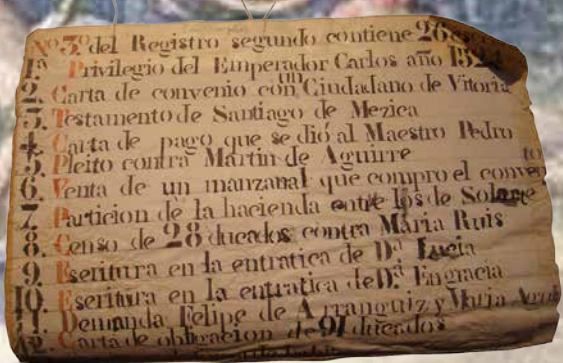 Nº 3º del Registro segundo contiene 26
1.ª Privilegio del Emperador Carlos año 152
2. Carta de convenio con un Ciudadano de Vitoria
3. Testamento de Santiago de Mezica
4. Carta de pago que se dió al Maestro Pedro
5. Pleito contra Martin de Aguirre
6. Venta de un manzanal que compro el conven to
7. Particion de la hacienda entre los de Solarte
8. Censo de 28 ducados contra Maria Ruis
9. Escritura en la entratica de D.ª Lucia
10. Escritura en la entratica de D.ª Engracia
11. Demanda Felipe de Arranguiz y Maria
12. Carta de obligacion de 91 ducados